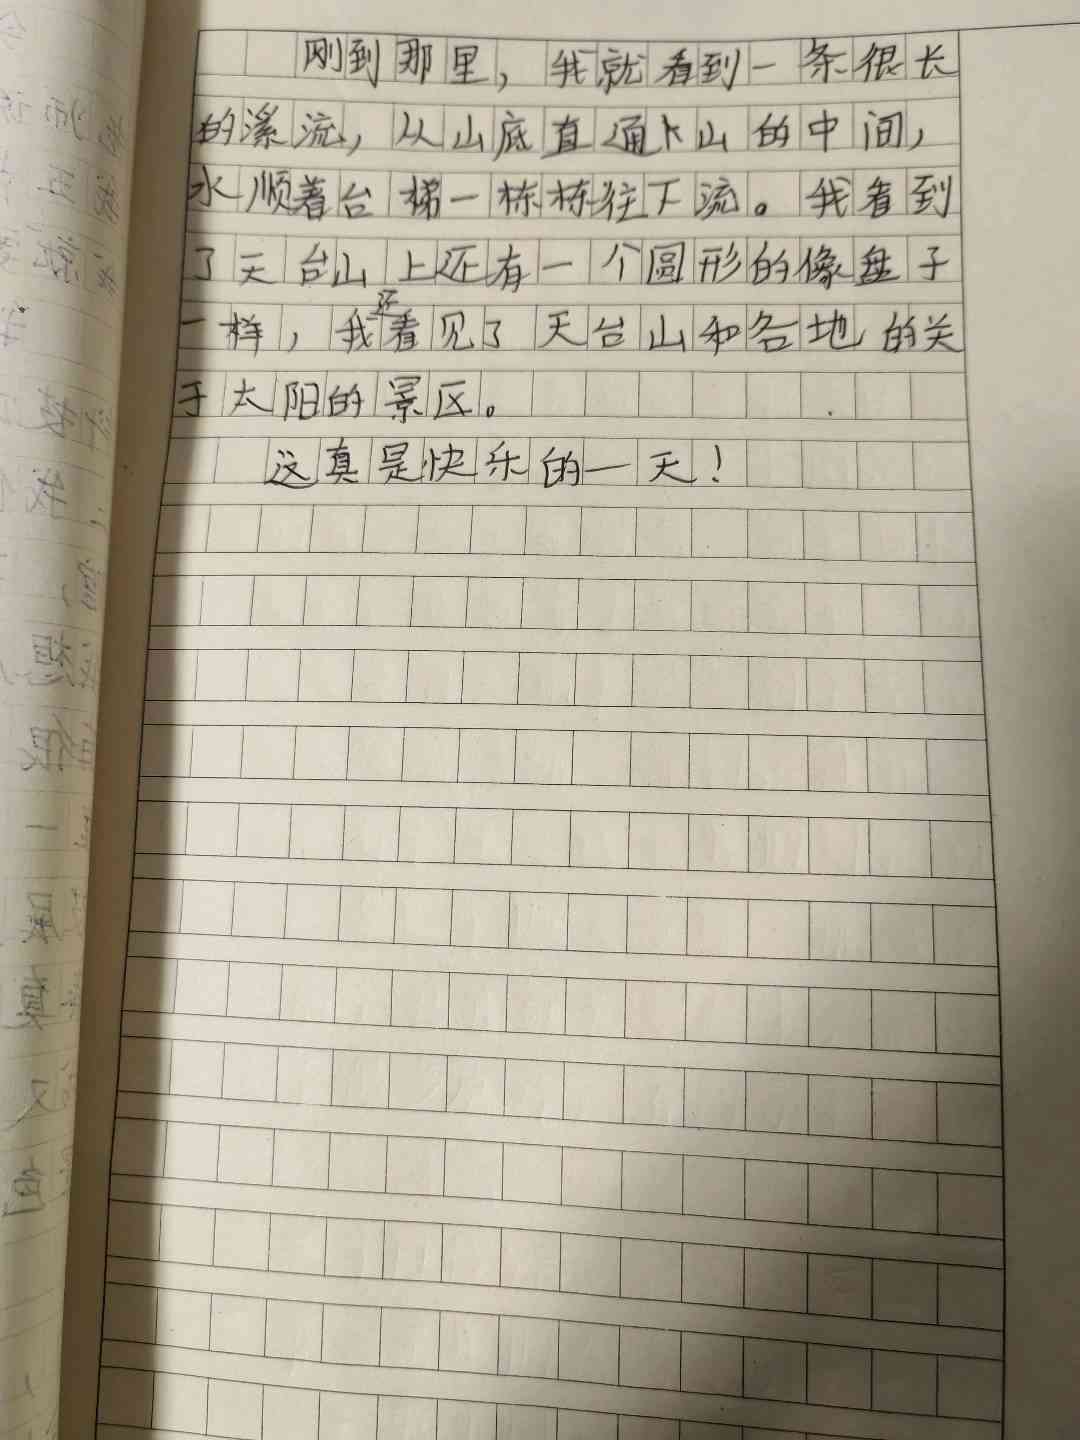 刚到那里，我就看到一条很长
的溪流，从山底直通下山的中间，
水顺着台梯一栋栋往下流。我看到
了天台山上还有一个圆形的像盘子
一样，我还看见了天台山和各地的关
于太阳的景区。
这真是快乐的一天！